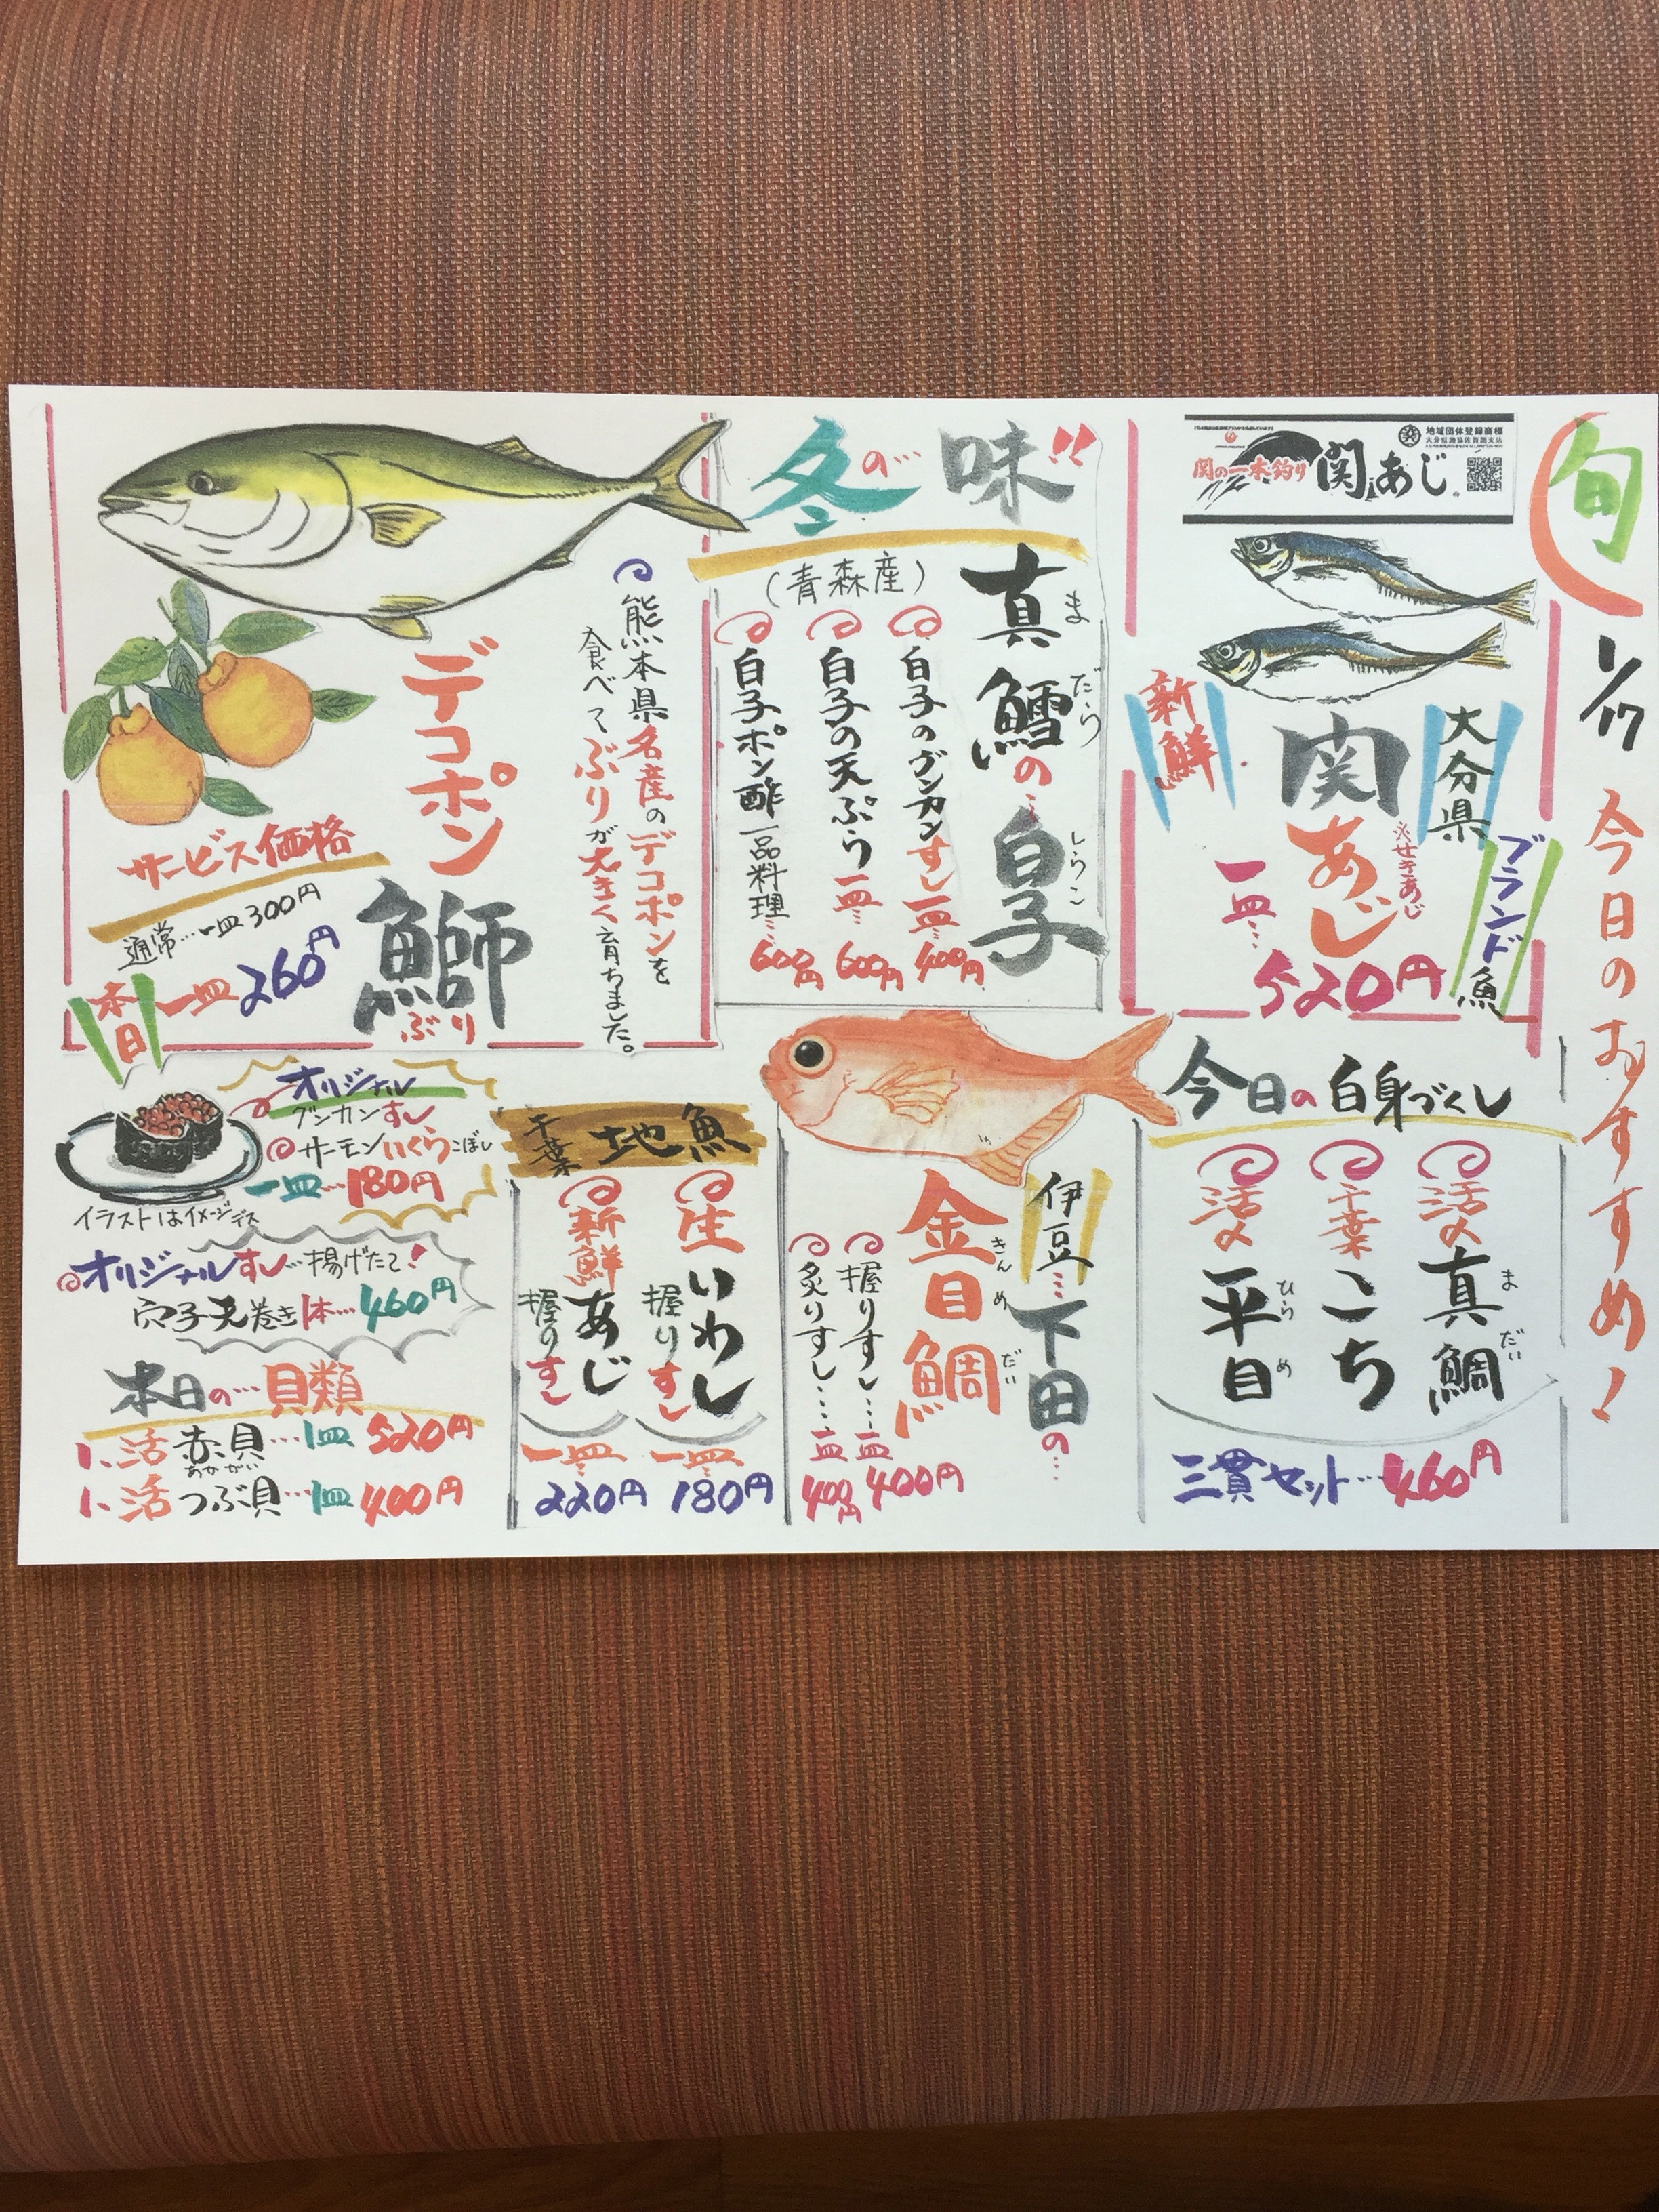 旬
1/17
今日のおすすめ!
関の一本釣り
関あじ
地域団体登録商標
大分県
ブランド魚
新鮮
関あじ
※せきあじ
一皿…
520円
冬の…味!!
(青森産)
真鱈の…白子
ま だら しらこ
白子のグンカンすし一皿…400円
白子の天ぷら一皿…600円
白子ポン酢一品料理…600円
熊本県名産のデコポンを
食べてぶりが大きく育ちました。
デコポン
鰤
ぶり
サービス価格
通常…一皿300円
本日
一皿260円
今日の白身づくし
活〆真鯛
まだい
千葉こち
活〆平目
ひらめ
三貫セット…460円
伊豆…下田の…
金目鯛
きんめだい
握りすし…一皿400円
炙りすし…一皿400円
千葉 地魚
生いわし
握りすし
一皿…
180円
新鮮あじ
握りすし
一皿…
220円
オリジナル
グンカンすし
サーモンいくらこぼし
一皿…180円
イラストはイメージデス
オリジナルすし…揚げたて!
穴子天巻き1本…460円
本日の…貝類
1、活赤貝…1皿520円
あかがい
1、活つぶ貝…1皿400円